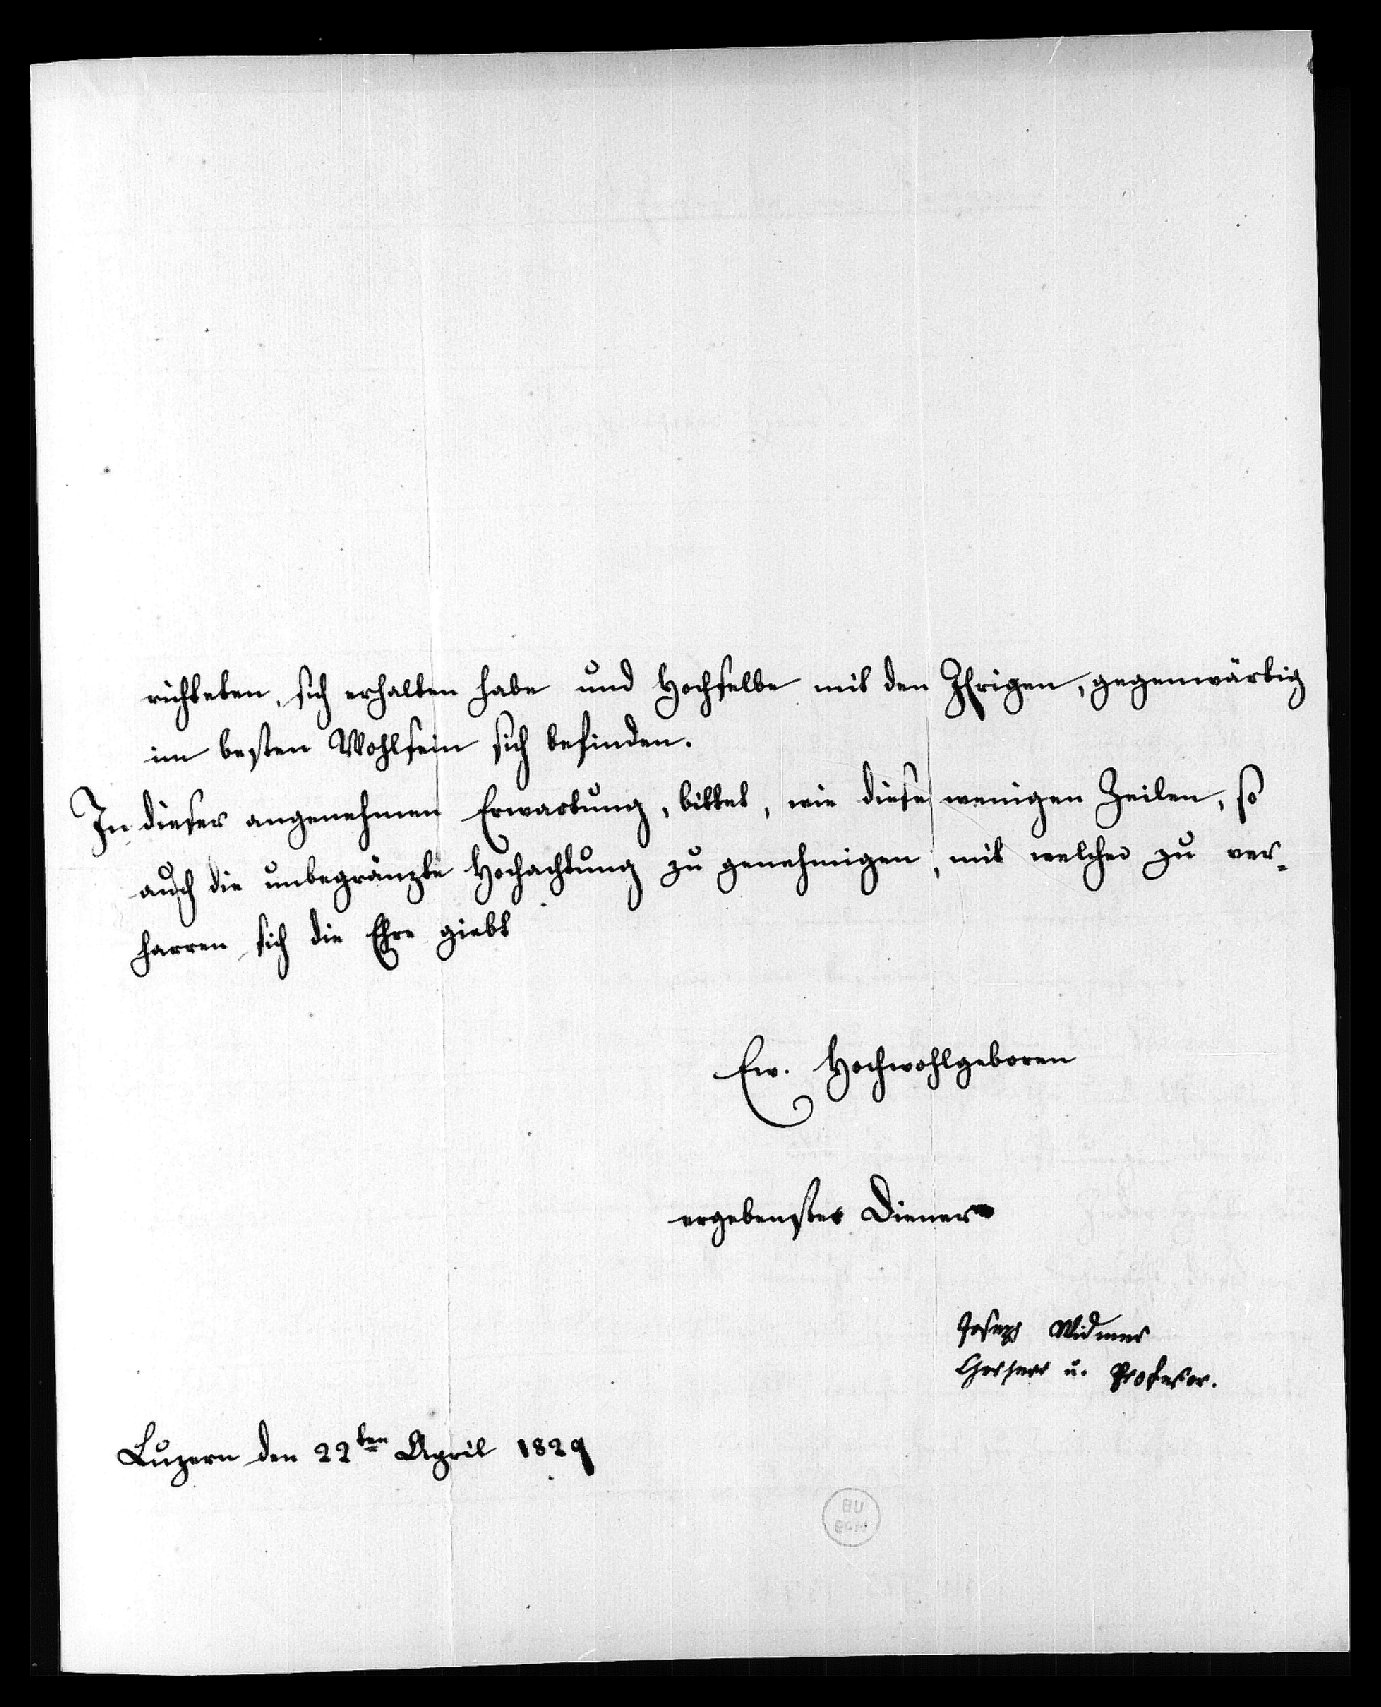 richteten, sich erhalten habe und Hochselbe mit den Ihrigen, gegenwärtig
im besten Wohlsein sich befinden.
In dieser angenehmen Erwartung, bittet, wie diese wenigen Zeilen, so
auch die unbegränzte Hochachtung zu genehmigen, mit welcher zu ver-
harren sich die Ehre giebt
Ew. Hochwohlgeboren
ergebenster Diener
Joseph Widmer
Chorherr u. Professor.
Luzern den 22ten April 1829